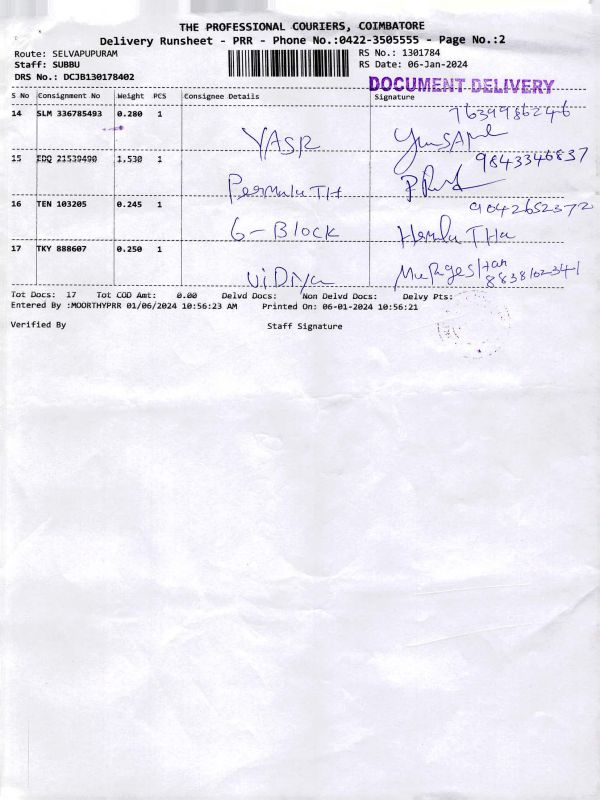 THE PROFESSIONAL COURIERS, COIMBATORE
Delivery Runsheet - PRR - Phone No.:0422-3505555 - Page No.:2
Route: SELVAPUPURAM RS No.: 1301784
Staff: SUBBU RS Date: 06-Jan-2024
DRS No.: DCJB130178402
DOCUMENT DELIVERY
S No Consignment No Weight PCS Consignee Details Signature
14 SLM 336785493 0.280 1 7639986246
YASR
15 EDQ 21539490 1,530 1 9843346837
PermaluTH
16 TEN 103205 0.245 1 9042652372
G-Block HemluTHa
17 TKY 888607 0.250 1
ViDiya MuRgeshan
8838102341
Tot Docs: 17 Tot COD Amt: 0.00 Delvd Docs: Non Delvd Docs: Delvy Pts:
Entered By :MOORTHYPRR 01/06/2024 10:56:23 AM Printed On: 06-01-2024 10:56:21
Verified By Staff Signature